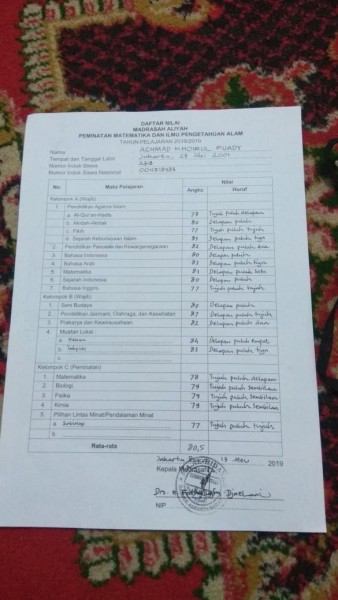 DAFTAR NILAI
MADRASAH ALIYAH
PEMINATAN MATEMATIKA DAN ILMU PENGETAHUAN ALAM
TAHUN PELAJARAN 2018/2019
Nama ACHMAD KHOIRUL FUADY
Tempat dan Tanggal Lahir Jakarta, 29 Mei 2001
Nomor Induk Siswa
Nomor Induk Siswa Nasional
No. Mata Pelajaran Nilai
Angka Huruf
Kelompok A (Wajib)
1. Pendidikan Agama Islam
a. Al-Qur'an-Hadis 78 Tujuh puluh delapan
b. Akidah-Akhlak 80 Delapan puluh
c. Fikih 77 Tujuh puluh tujuh
d. Sejarah Kebudayaan Islam 83 Delapan puluh tiga
2. Pendidikan Pancasila dan Kewarganegaraan 82 Delapan puluh dua
3. Bahasa Indonesia 80 Delapan puluh
4. Bahasa Arab 83 Delapan puluh tiga
5. Matematika 81 Delapan puluh satu
6. Sejarah Indonesia 80 Delapan puluh
7. Bahasa Inggris 77 Tujuh puluh tujuh
Kelompok B (Wajib)
1. Seni Budaya 80 Delapan puluh
2. Pendidikan Jasmani, Olahraga, dan Kesehatan 87 Delapan puluh tujuh
3. Prakarya dan Kewirausahaan 82 Delapan puluh dua
4. Muatan Lokal
a. 84 Delapan puluh empat
b. 83 Delapan puluh tiga
c.
Kelompok C (Peminatan)
1. Matematika 78 Tujuh puluh delapan
2. Biologi 79 Tujuh puluh sembilan
3. Fisika 79 Tujuh puluh sembilan
4. Kimia 79 Tujuh puluh sembilan
5. Pilihan Lintas Minat/Pendalaman Minat
a. 77 Tujuh puluh tujuh
b.
Rata-rata 80,5
Jakarta, 13 Mei 2019
Kepala Madrasah
Drs. H.
NIP